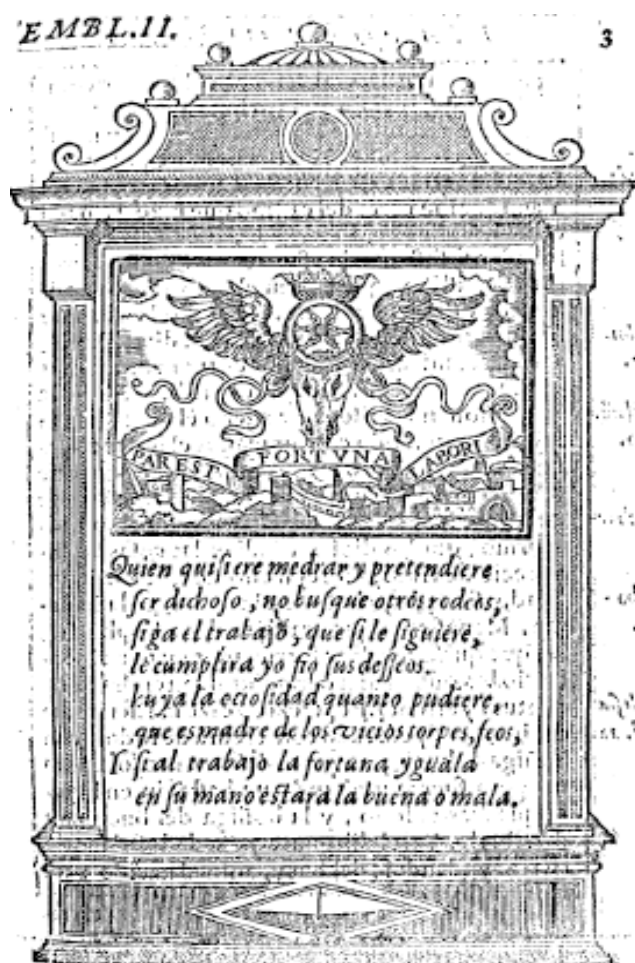 EMBL.II.
3
PAR EST FORTVNA LABORI
Quien quiſiere medrar y pretendiere
ſer dichoſo, no buſque otros rodeos,
ſiga el trabajo, que ſi le ſiguiere,
le cumplira yo fio ſus deſſeos.
Huya la ocioſidad quanto pudiere,
que es madre de los vicios torpes, feos,
Y ſi al trabajo la fortuna yguala
en ſu mano eſtara la buena o mala.